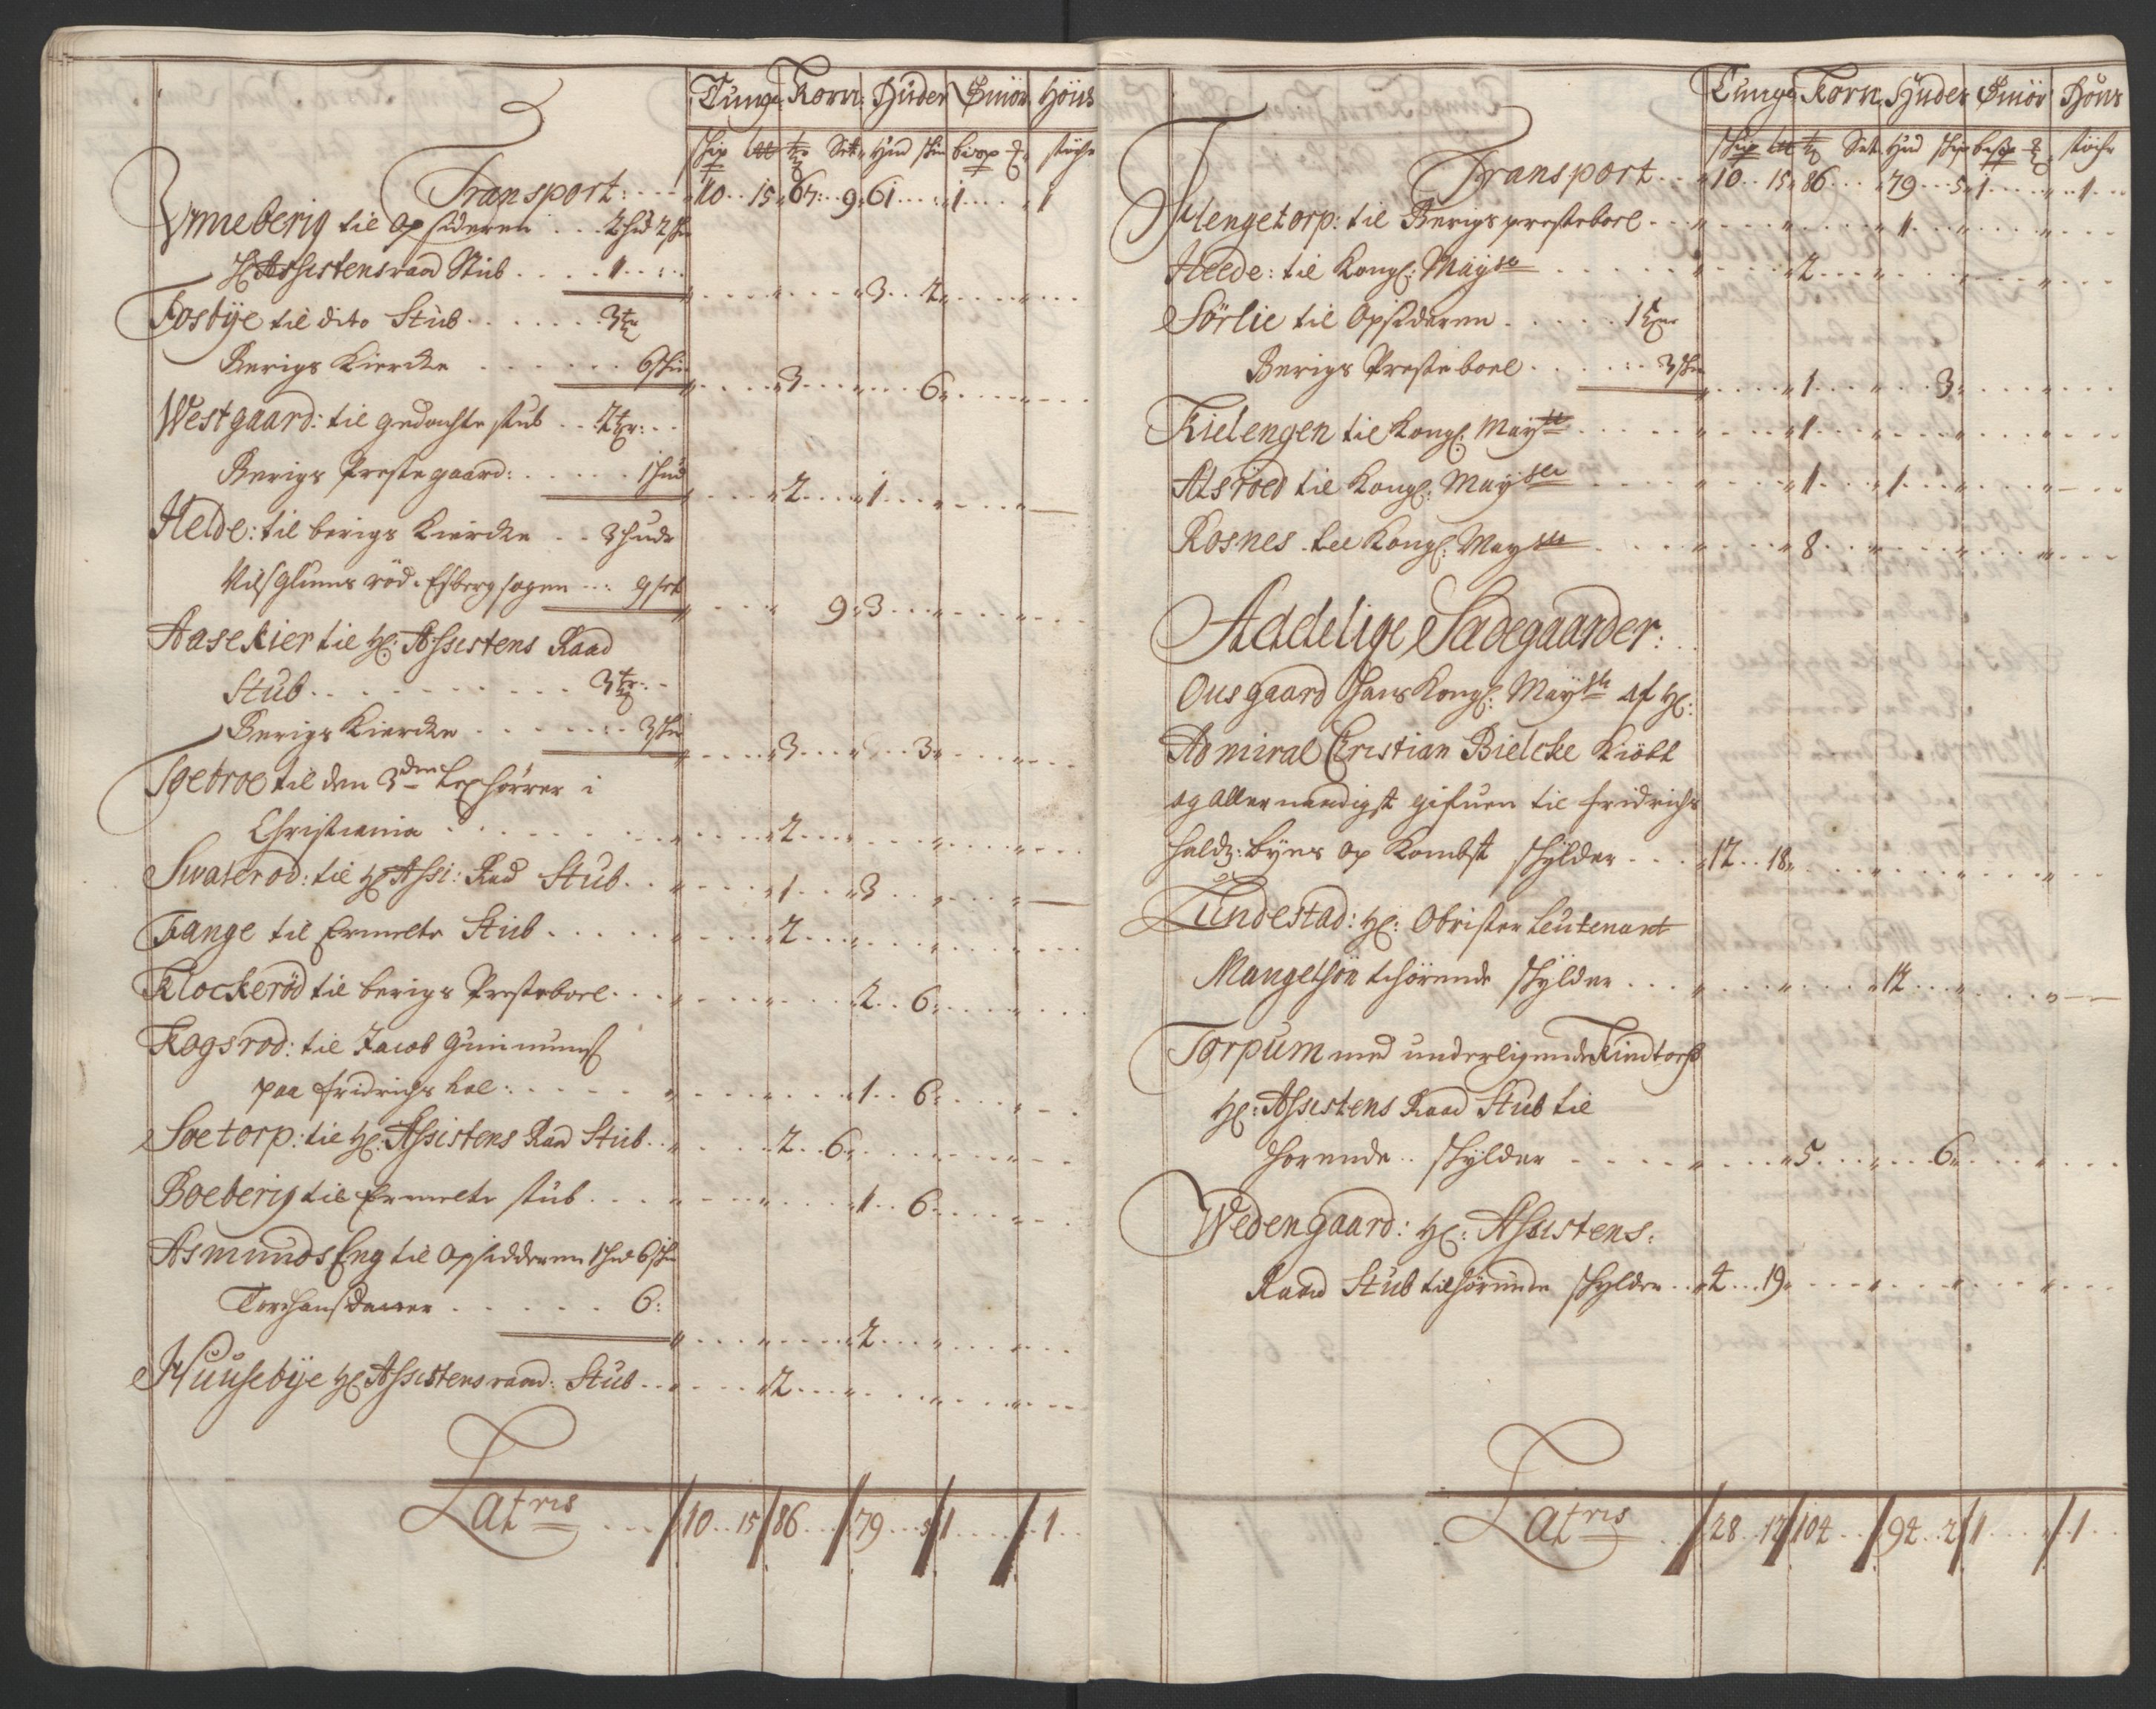 Tunge Korn: Huder Smör Höns
Skip ltt tr Sett Hud skin bispp stöche
Transport: 10 15 67 9 61 1 1
Ameberig til Opsideren 2 hud 2 skin
H: Assistensraad Stub 1
3 2
Fosbÿe til dito Stub 3 tr
Berigs Kiercke 6 skin
3 6
Westgaard: til gedachte stub 2 tr:
Berigs Prestegaard: 1 hud
2 1
Helde: til berigs Kiercke 3 hude
Nils Glumsröd Esberg sogen 9 set
9 3
Aasekier til H: Assistens Raad
Stub 3 tr:
Berigs Kiercke 3 skin
3 3
til den 3den Lexhörrer i
Christiania 2
Swaleröd: til H: Assi: Rad Stub 1 3
Tange til Ermelte Stub 2
Klockeröd til berigs Presteboel 2 6
Kogsröd: til Jacob
paa fridrichs hal: 1 6
Soetorp: til H: Assistens Raad Stub 2 6
Boeberig til Ermelte stub 1 6
AsmundsEng til Opsidderen 1 hud 6 skin
6:
2
Huusebÿe H: Assistens raad: Stub 2
Latris 10 15 86 79 5 1 1
Tunge Korn Huder Smör Höns
Skip ltt tr Set Hud skin bespp stöche
Transport 10 15 86 79 5 1 1
Hengetorp: til Berigs presteboel 1
Heede: til Kongl: Maÿst 2
Sörlie til Opsideren 1 tr
Berigs Presteboel 3 skin
1 3
Kielengen til Kongl: Maÿst 1
Atsröed til Kongl: Maÿst 1 1
Rosnes til Kongl: Maÿst 8
Addelige Sædegaarder:
Ousgaard Hans Kongl: Maÿst Af H:
Admiral Christian Bielcke Kiöbt
og allernaadigst gifuen til fridrichs
halds: bÿes Op Kombst skÿlder 17 18
Tundestad: H: Obrister Leutenant
Mangelsön tehörende skÿlder 14
Torpum med underligende Kindtorp
H: Assistens Raad Stub til
horende skÿlder 5 6
Wedengaard: H: Assistens:
Raad Stub tilhörende skylder 4 19
Latris 28 12 104 94 2 1 1